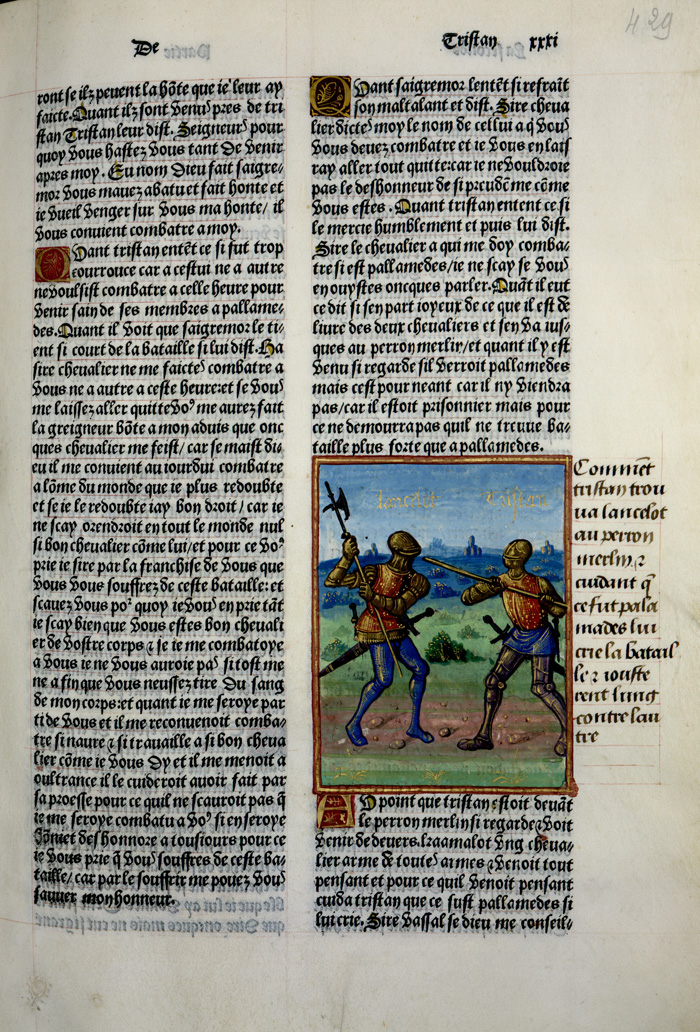 429
De
Tristan xxxi
ront se ilz peuent la hōte que ie leur ay
faicte. Quant ilz sont venus pres de tri
stan Tristan leur dist. Seigneurs pour
quoy vous hastez vous tant de venir
apres moy. Eu nom Dieu fait saigre-
mor vous mauez abatu et fait honte et
ie vueil venger sur vous ma honte/ il
vous conuient combatre a moy.
Quant tristan entēt ce si fut trop
courrouce car a cestui ne a autre
ne voulsist combatre a celle heure pour
venir sain de ses membres a pallame-
des. Quant il voit que saigremor le ti-
ent si court de la bataille si lui dist. Ha
sire cheualier ne me faictes combatre a
vous ne a autre a ceste heure: et se vous
me laissez aller quitte vo⁹ me aurez fait
la greigneur bōte a mon aduis que onc
ques cheualier me feist/ car se maist di-
eu il me conuient au iourdui combatre
a lōme du monde que ie plus redoubte
et se ie le redoubte iay bon droit/ car ie
ne scay orendroit en tout le monde nul
si bon cheualier cōme lui/ et pour ce vo⁹
prie ie sire par la franchise de vous que
vous vous souffrez de ceste bataille: et
scauez vous po² quoy ie vous en prie tāt
ie scay bien que vous estes bon cheuali
er de vostre corps ⁊ se ie me combatoye
a vous ie ne vous auroie pas si tost me
ne a fin que vous neussez tire du sang
de mon corps: et quant ie me seroye par
ti de vous et il me reconuenoit comba-
tre si naure ⁊ si trauaille a si bon cheua
lier cōme ie vous dy et il me menoit a
oultrance il le cuideroit auoir fait par
sa proesse pour ce quil ne scauroit pas q̄
ie me seroye combatu a vo⁹ si en seroye
deshonnore a tousiours pour ce
ie vous prie q̄ vous souffres de ceste ba-
taille/ car par le souffrir me pouez vous
sauuer mon honneur.
Quant saigremor lentēt si refraīt
son maltalant et dist. Sire cheua
lier dictes moy le nom de cellui a q̄ vous
vous deuez combatre et ie vous en lais
ray aller tout quitte: car ie ne vouldroie
pas le deshonneur de si preudōme cōme
vous estes. Quant tristan entent ce si
le mercie humblement et puis lui dist.
Sire le cheualier a qui me doy comba-
tre si est pallamedes/ ie ne scay se vous
en ouystes oncques parler. Quāt il eut
ce dit si sen part ioyeux de ce que il est de
liure des deux cheualiers et sen va ius-
ques au perron merlin/ et quant il y est
venu si regarde sil verroit pallamedes
mais cest pour neant car il ny viendra
pas/ car il estoit prisonnier mais pour
ce ne demourra pas quil ne treuue ba-
taille plus forte que a pallamedes.
lancelot Tristan
Commēt
tristan trou
ua lancelot
au perron
merlin ⁊
cuidant q̄
ce fut pala
mades lui
crie la batail
le ⁊ iouste
rent lung
contre lau
tre
A point que tristan estoit deuāt
le perron merlin si regarde ⁊ voit
venir de deuers kraamalot vng cheua-
lier arme de toutes armes ⁊ venoit tout
pensant et pour ce quil venoit pensant
cuida tristan que ce fust pallamedes si
lui crie. Sire vassal se dieu me conseil-